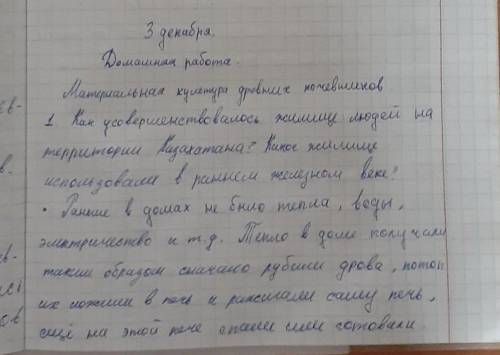 3 декабря.
Домашняя работа.
Материальная культура древних кочевников
ев-
1. Как усовершенствовалось жилище людей на
территории Казахатана? Какое жилище
в.
использовали в раннем железном веке?
• Раньше в домах не было тепла, воды,
электричество и т.д. Тепло в доме получали
ев-
таким образом сначало рубили дрова, потом
ись
их ложили в печь и разжигали самую печь,
ов
ещё на этой пече спали или готовали